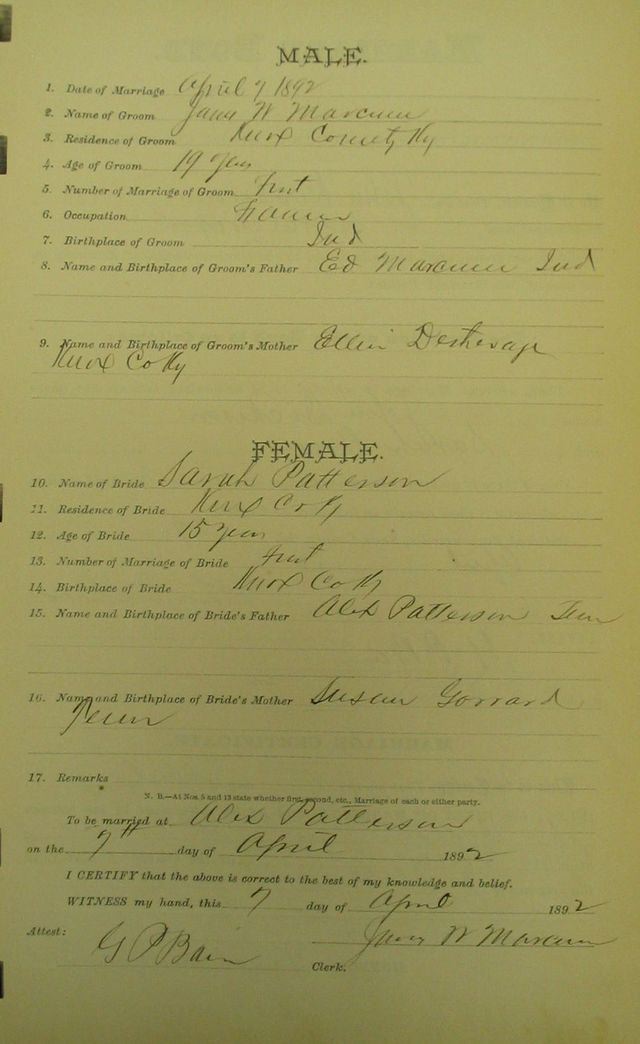 MALE.
1. Date of Marriage April 7 1892
2. Name of Groom James W Marcum
3. Residence of Groom Knox County Ky
4. Age of Groom 19 years
5. Number of Marriage of Groom First
6. Occupation Farmer
7. Birthplace of Groom Ind
8. Name and Birthplace of Groom's Father Ed Marcum Ind
9. Name and Birthplace of Groom's Mother Ellin
Knox Co Ky
FEMALE.
10. Name of Bride Sarah Patterson
11. Residence of Bride Knox Co Ky
12. Age of Bride 15 years
13. Number of Marriage of Bride First
14. Birthplace of Bride Knox Co Ky
15. Name and Birthplace of Bride's Father Alex Patterson Tenn
16. Name and Birthplace of Bride's Mother Susan Gorrard
Tenn
17. Remarks
N. B.—At Nos. 5 and 13 state whether first, second, etc., Marriage of each or either party.
To be married at Alex Patterson
on the 7th day of April 1892
I CERTIFY that the above is correct to the best of my knowledge and belief.
WITNESS my hand, this 7 day of April 1892
Attest: James W Marcum
G P Bain Clerk.